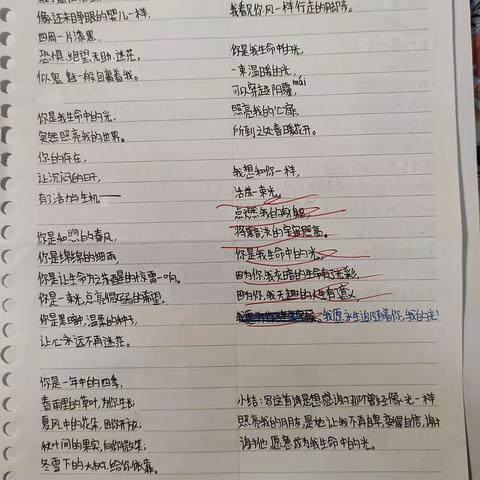 像还未睁眼的婴儿一样,
四周一片漆黑,
恐惧、绝望、无助、迷茫,
似鬼魅一般包裹着我。
你是我生命中的光,
突然照亮我的世界。
你的存在,
让沉闷的日子,
有了活力与生机——
你是和煦的春风,
你是绵绵的细雨,
你是让生命为之苏醒的惊雷一响。
你是一束光,点亮
你是黑暗中,温柔的种子,
让心永远不再迷茫。
你是一年中的四季,
春雨里的草叶,为你生长;
夏风中的花朵,因你开放;
秋叶间的果实,向你微笑;
冬雪下的大树,给你依靠。
我看见你风一样行走的脚步。
你是我生命中的光,
一束温暖的光,
可以穿越阴霾,
mái
照亮我的心扉,
所到之处春暖花开。
我想和你一样,
活成一束光。
点燃我的身躯,
将黑暗的宇宙照亮。
你是我生命中的光。
因为你,我灰暗的生命有了光彩,
因为你,我无趣的人生有了意义,
我愿永生追随着你,我的光!
小结:写这首诗是想感谢那个曾经像光一样
照亮我的朋友,是她让我不再自卑,变得自信,谢谢
谢谢她愿意成为我生命中的光。